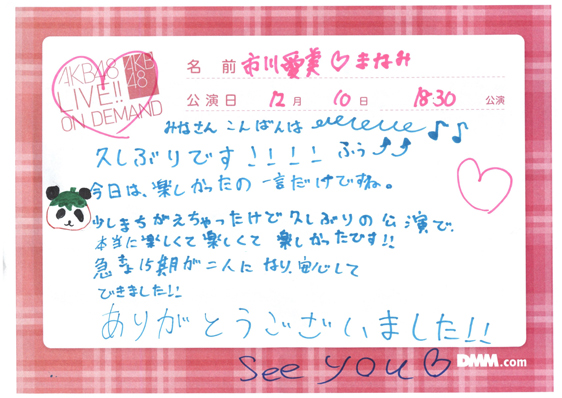 AKB48
LIVE!!
ON DEMAND
AKB
48
名前 市川愛美♡まなみ
公演日 12月 10日 18:30 公演
みなさん こんばんは
久しぶりです!!!! ふぅ
今日は、楽しかったの一言だけですね。
少しまちがえちゃったけど久しぶりの公演で、
本当に楽しくて楽しくて 楽しかったです!!
急きょ15期が二人になり、安心して
できました!!
ありがとうございました!!
see you♡
DMM.com